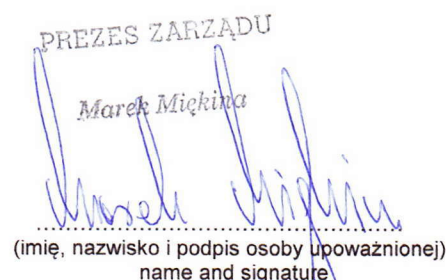 PREZES ZARZĄDU
Marek Miękina
Marek Miękina
(imię, nazwisko i podpis osoby upoważnionej)
name and signature